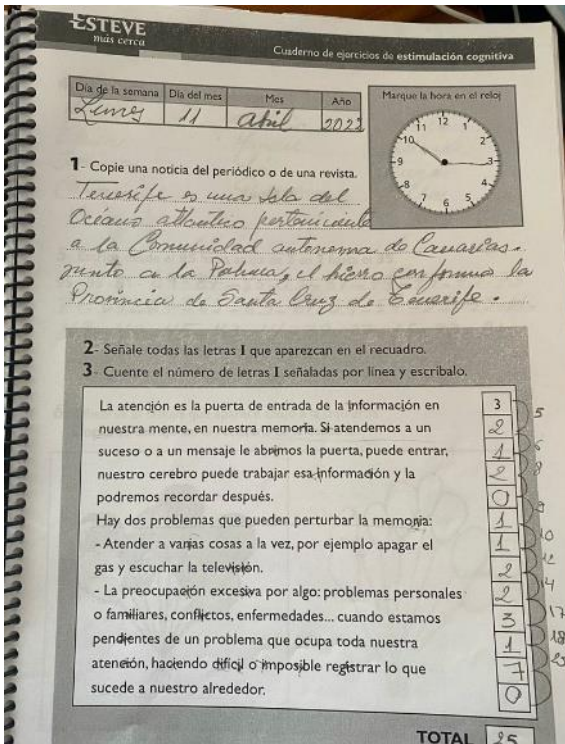 ESTEVE
más cerca
Cuaderno de ejercicios de estimulación cognitiva
Día de la semana Día del mes Mes Año
Lunes 11 abril 2022
Marque la hora en el reloj
12 1 2 3 4 5 6 7 8 9 10 11
1- Copie una noticia del periódico o de una revista.
Tenerife es una isla del
Océano atlántico perteniciente
a la Comunidad autonoma de Canarias.
junto a la Palma, el hierro conforma la
Provincia de Santa Cruz de Tenerife.
2- Señale todas las letras I que aparezcan en el recuadro.
3- Cuente el número de letras I señaladas por línea y escríbalo.
La atención es la puerta de entrada de la información en 3
nuestra mente, en nuestra memoria. Si atendemos a un 2 5
suceso o a un mensaje le abrimos la puerta, puede entrar, 1 6
nuestro cerebro puede trabajar esa información y la 2 8
podremos recordar después. 0
Hay dos problemas que pueden perturbar la memoria: 1 9
- Atender a varias cosas a la vez, por ejemplo apagar el 1 10
gas y escuchar la televisión. 2 12
- La preocupación excesiva por algo: problemas personales 2 14
o familiares, conflictos, enfermedades... cuando estamos 3 17
pendientes de un problema que ocupa toda nuestra 1 18
atención, haciendo difícil o imposible registrar lo que 7 25
sucede a nuestro alrededor. 0
TOTAL 25